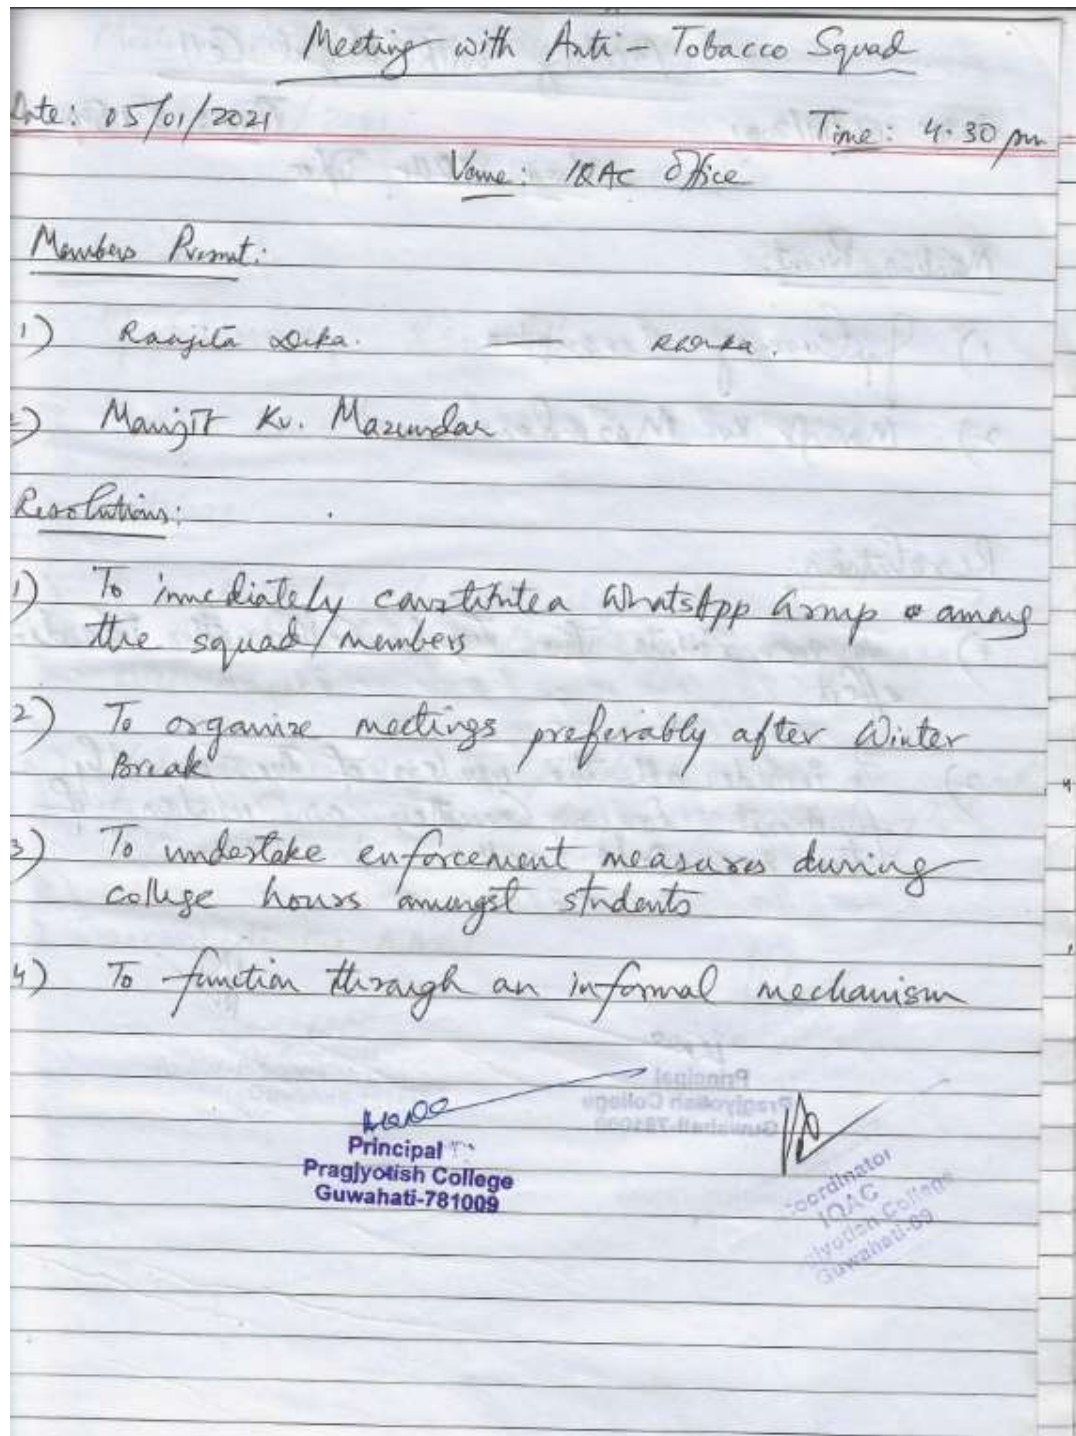 Meeting with Anti-Tobacco Squad
Date: 05/01/2021
Time: 4.30 pm
Venue: IQAC Office
Members Present:
1) Ranjita Deka.
2) Manjit Kr. Mazumdar
Resolutions:
1) To immediately constitute a WhatsApp Group among
the squad/members
2) To organize meetings preferably after Winter
Break
3) To undertake enforcement measures during
college hours amongst students
4) To function through an informal mechanism
Principal
Pragjyotish College
Guwahati-781009
Coordinator
IQAC
Pragjyotish College
Guwahati-09